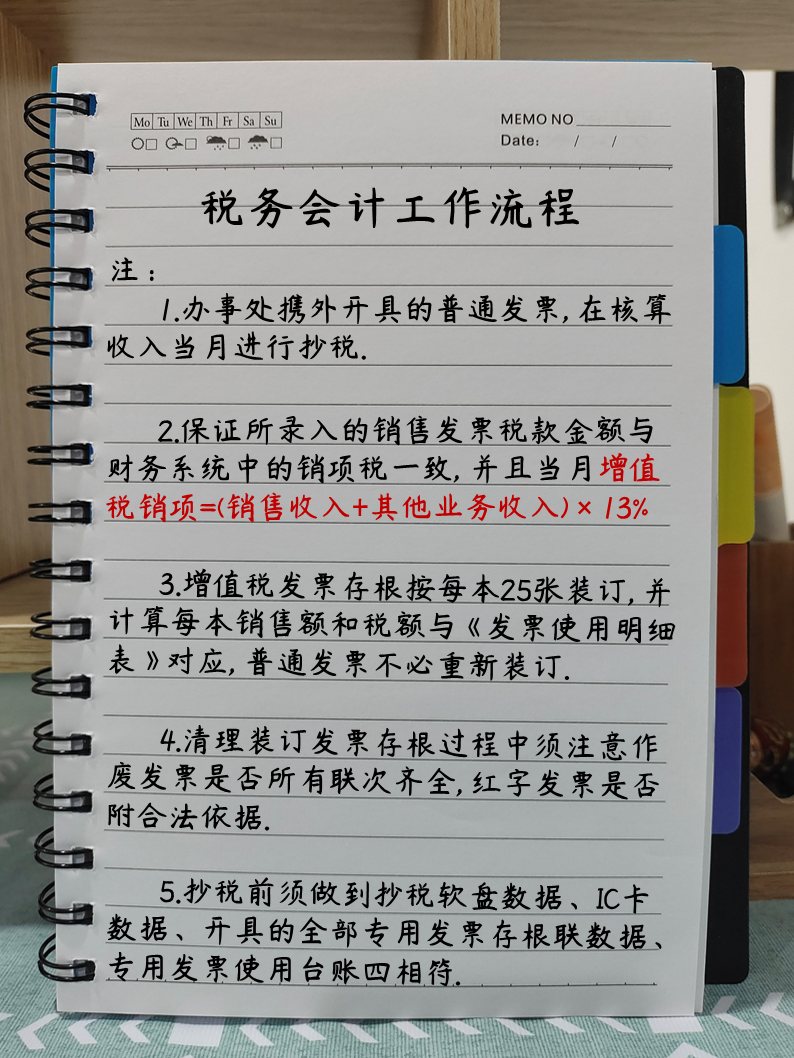 Mo Tu We Th Fr Sa Su
MEMO NO
Date: / /
税务会计工作流程
注：
1.办事处携外开具的普通发票,在核算
收入当月进行抄税.
2.保证所录入的销售发票税款金额与
财务系统中的销项税一致,并且当月增值
税销项=(销售收入+其他业务收入)×13%
3.增值税发票存根按每本25张装订,并
计算每本销售额和税额与《发票使用明细
表》对应,普通发票不必重新装订.
4.清理装订发票存根过程中须注意作
废发票是否所有联次齐全,红字发票是否
附合法依据.
5.抄税前须做到抄税软盘数据、IC卡
数据、开具的全部专用发票存根联数据、
专用发票使用台账四相符.